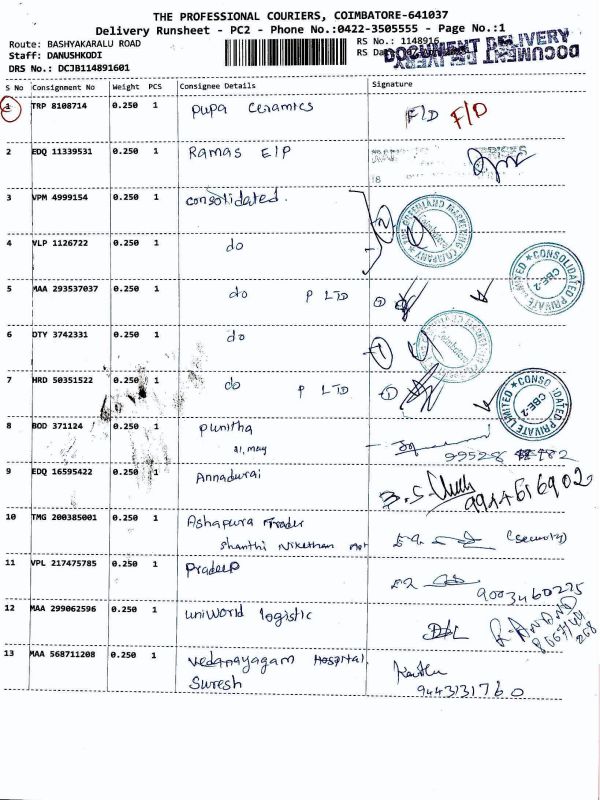 THE PROFESSIONAL COURIERS, COIMBATORE-641037
Delivery Runsheet - PC2 - Phone No.:0422-3505555 - Page No.:1
Route: BASHYAKARALU ROAD
RS No.: 1148916
Staff: DANUSHKODI
RS Da
DOCUMENT DELIVERY
DOCUMENT DELIVERY
DRS No.: DCJB114891601
S No Consignment No Weight PCS Consignee Details Signature
1 TRP 8108714 0.250 1 pupa ceramics F/D F/D
2 EDQ 11339531 0.250 1 Ramas EIP
3 VPM 4999154 0.250 1 consolidated.
4 VLP 1126722 0.250 1 do
GREENLAND MARKETING COMPANY Coimbatore
5 MAA 293537037 0.250 1 do P LTD
CONSOLIDATED PRIVATE LIMITED CBE-2
6 DTY 3742331 0.250 1 do
Coimbatore
7 HRD 50351522 0.250 1 do P LTD
CONSOLIDATED PRIVATE LIMITED CBE-2
8 BOD 371124 0.250 1 punitha
99528
9 EDQ 16595422 0.250 1 Annadurai
9944616902
10 TMG 200385001 0.250 1 Ashapura Trader
Shanthi Nikethan (security)
11 VPL 217475785 0.250 1 Pradeep
9003460225
12 MAA 299062596 0.250 1 uniworld logistic
R. ANAND
13 MAA 568711208 0.250 1 vedanayagam Hospital
Suresh
9443131760